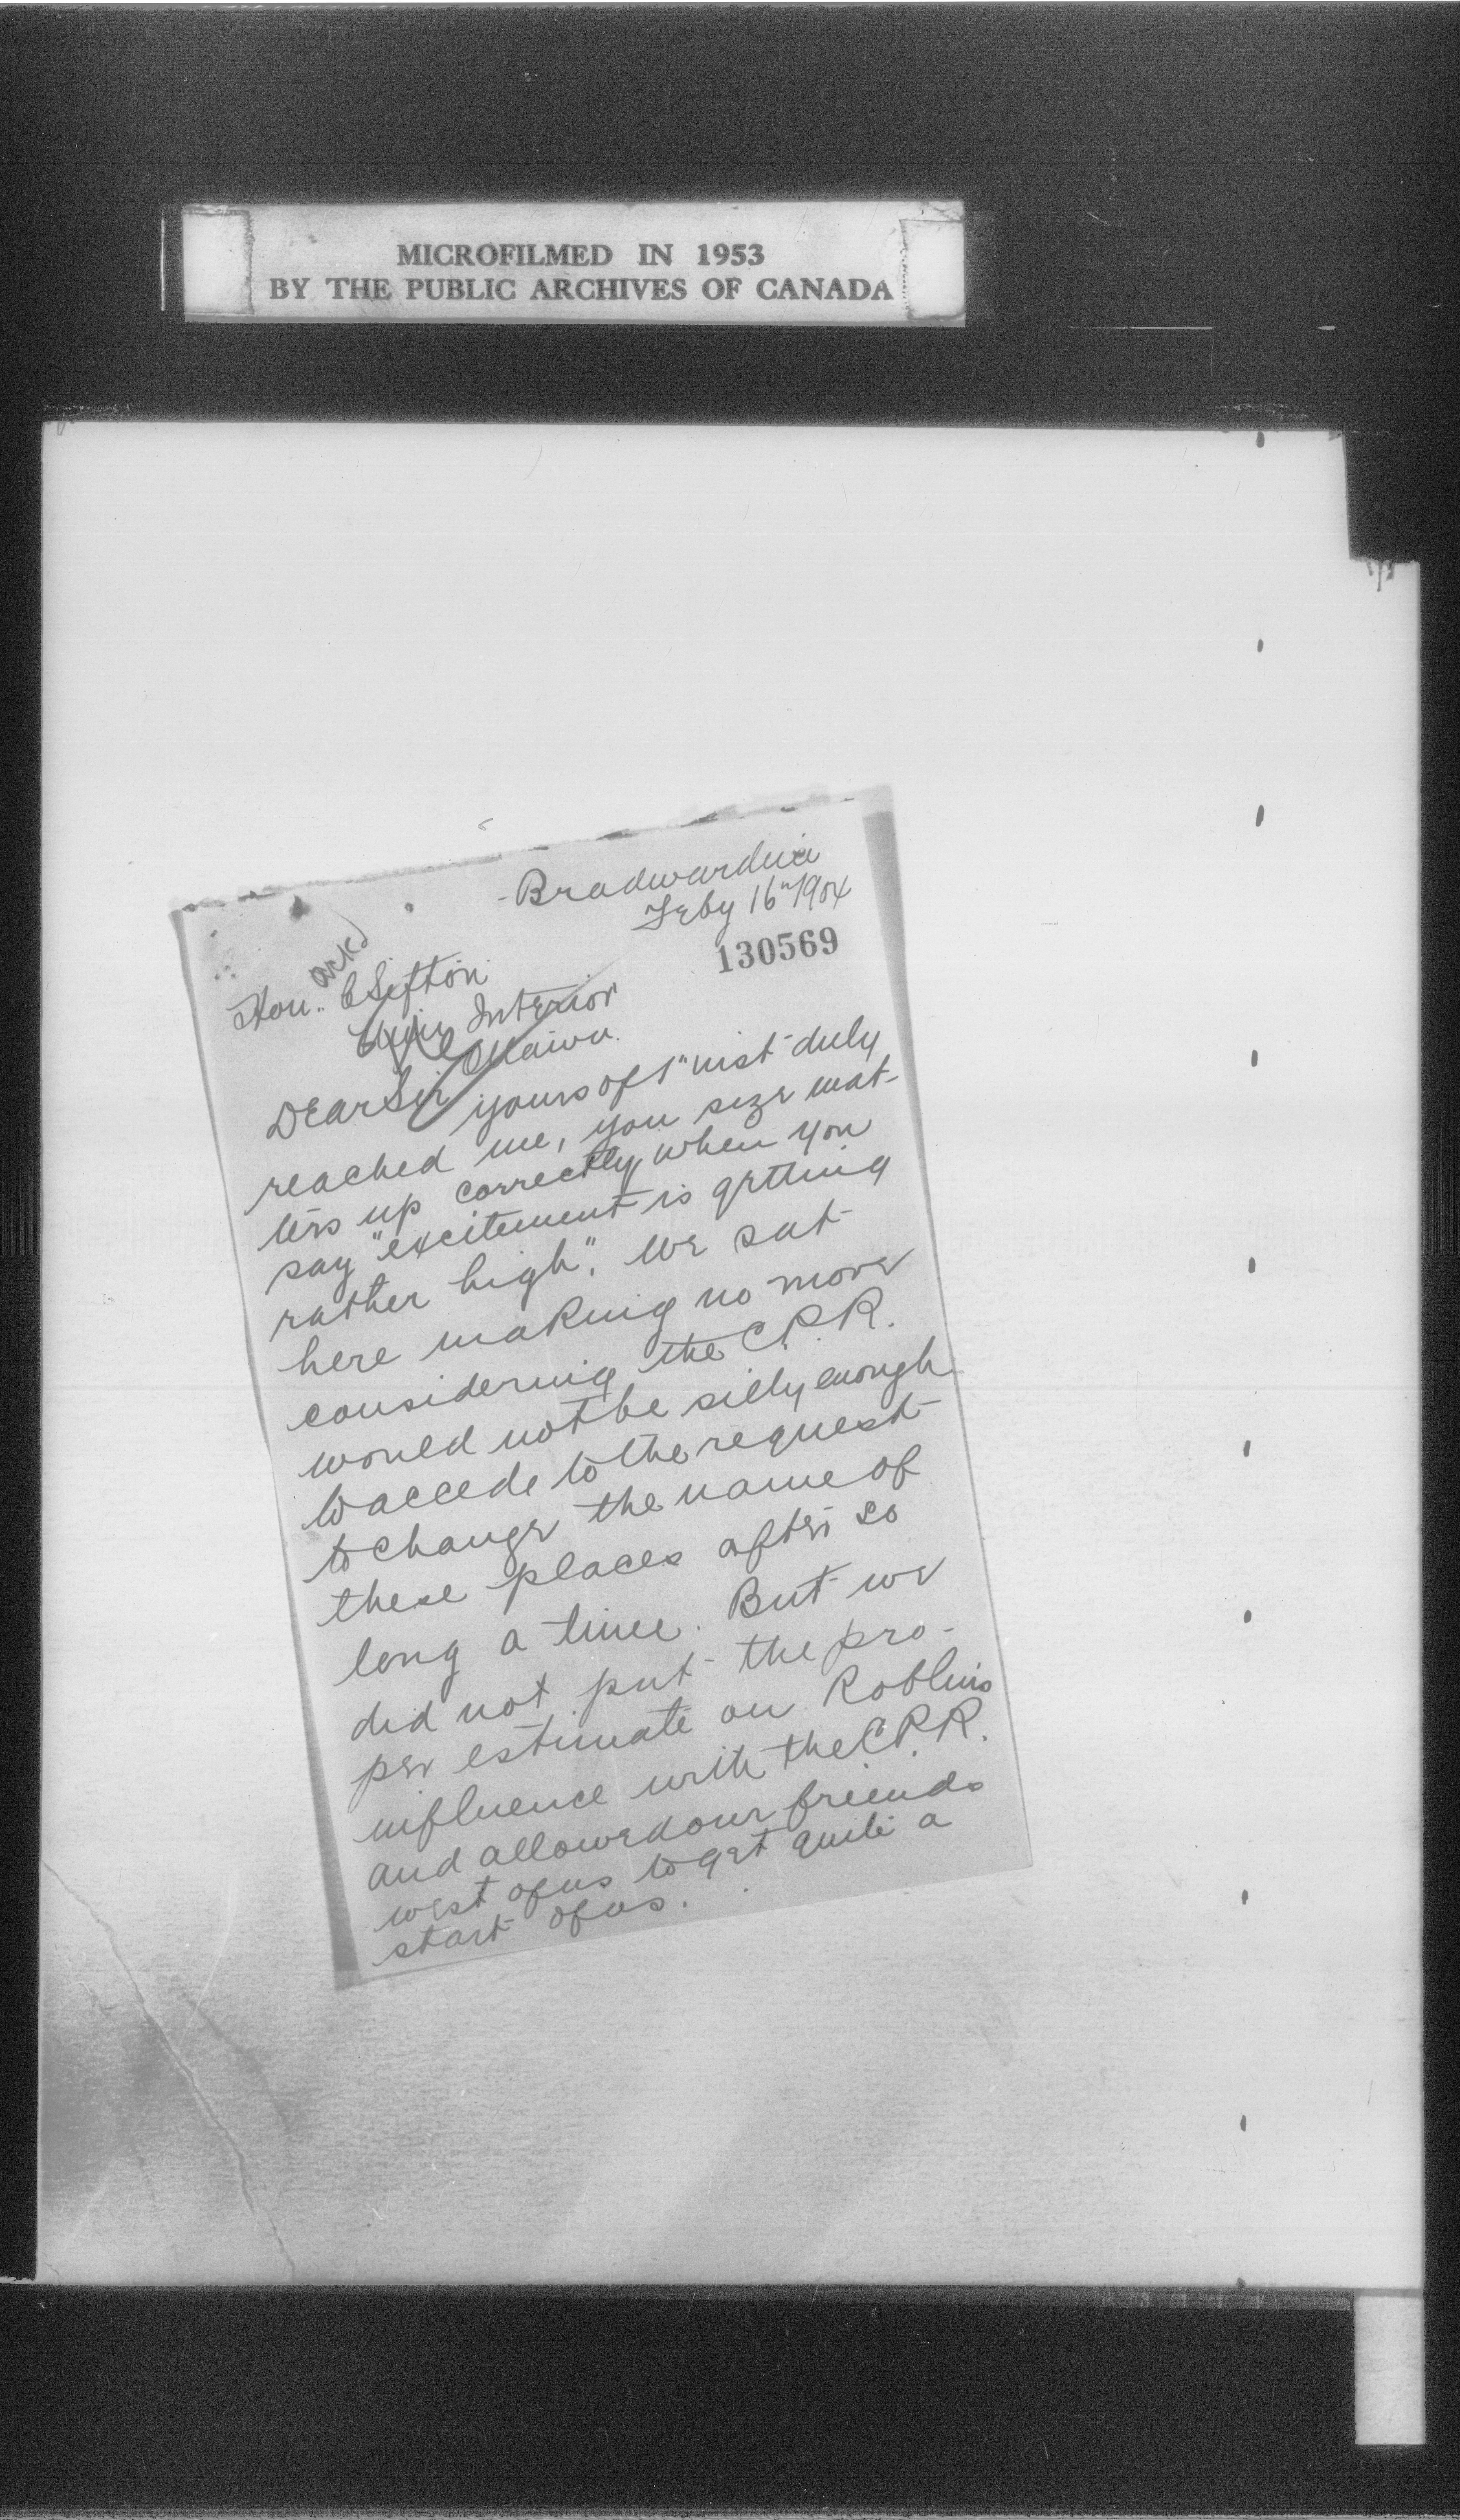 MICROFILMED IN 1953
BY THE PUBLIC ARCHIVES OF CANADA
Bradwardine
Feby 16" 1904
130569
ackd
Hon. C Sifton
Interior
Ottawa.
Dear Sir
yours of 1" inst duly
reached me, you size mat-
ters up correctly when you
say "excitement is getting
rather high". We sat
here making no move
considering the C.P.R.
would not be silly enough
to accede to the request
to change the name of
these places after so
long a time. But we
did not put the pro-
per estimate on Roblins
influence with the C.P.R.
and allowed our friends
west of us to get quite a
start of us.